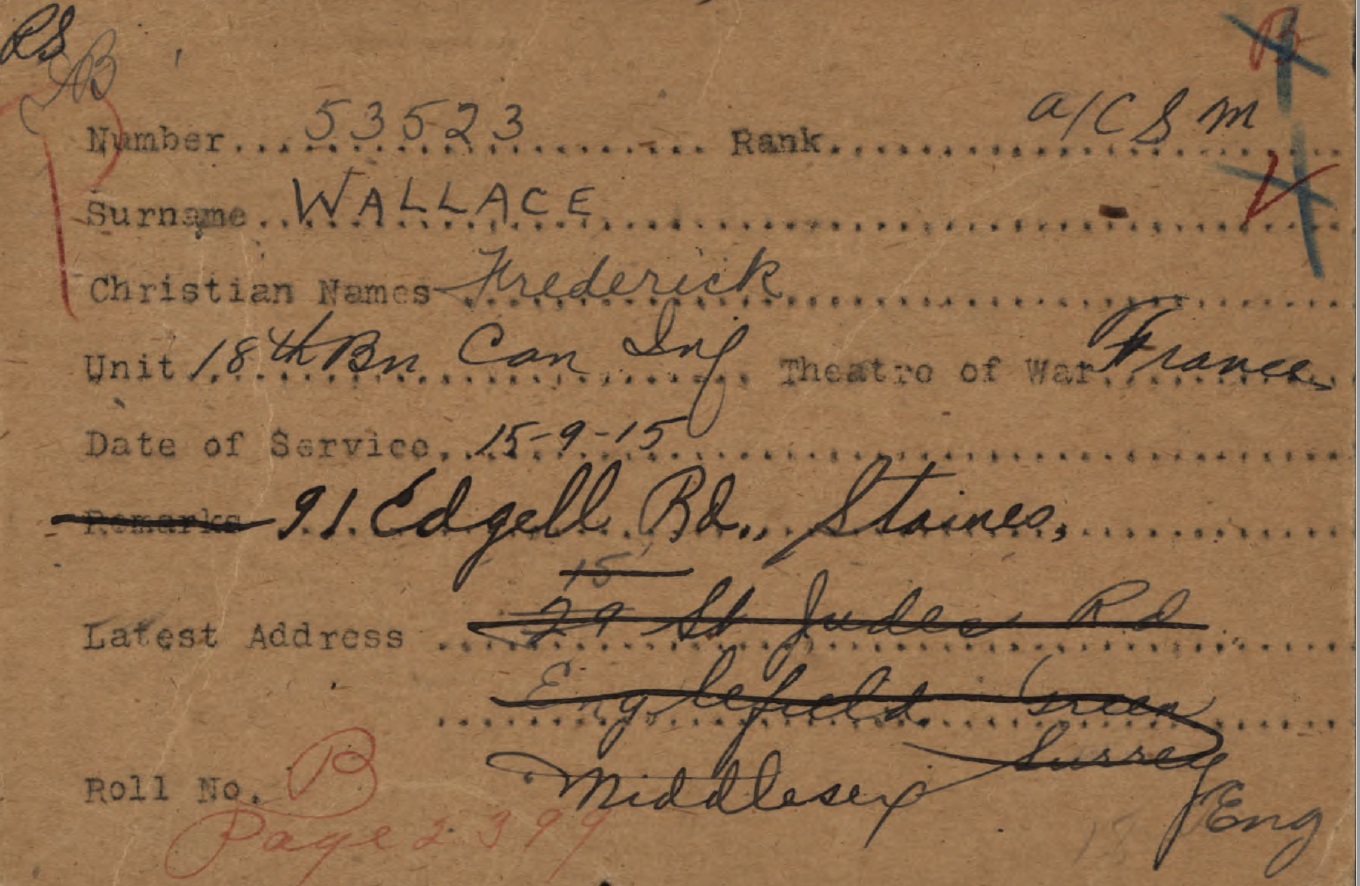 RS
AB
B
Number 53523 Rank a/CSM
Surname WALLACE V
Christian Names Frederick
Unit 18th Bn Can Inf Theatre of War France
Date of Service 15-9-15
Remarks 91 Edgell Rd., Staines,
15
Latest Address 29 St Judes Rd
Englefield Green
Surrey
Roll No. B Middlesex Eng
Page 2399